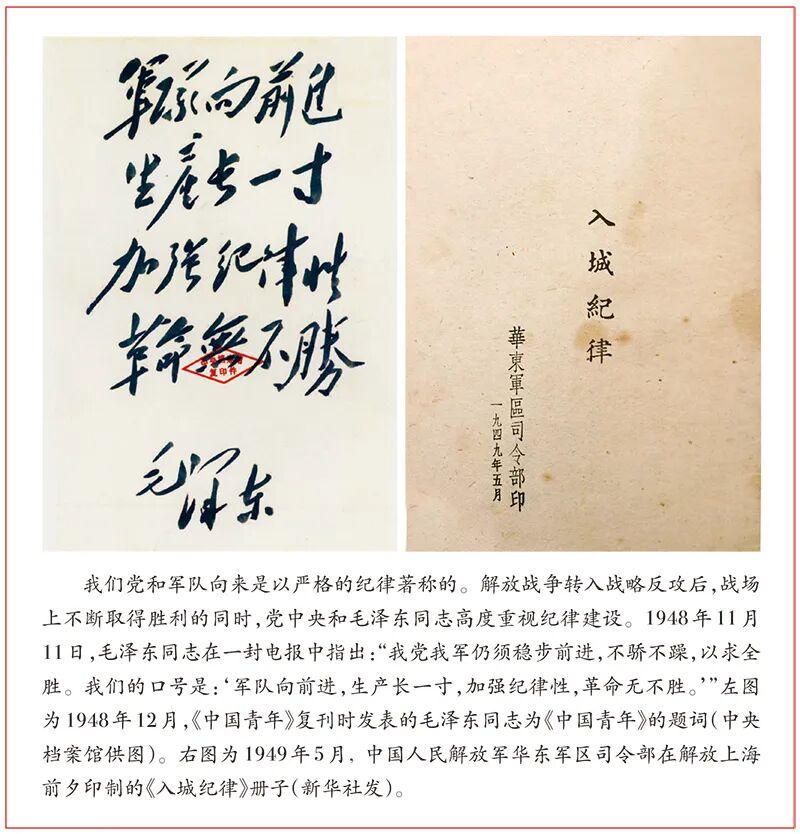 軍隊向前進
生產长一寸
加强紀律性
革命無不勝
复印件
毛泽东
入城紀律
華東軍區司令部印
一九四九年五月
我们党和军队向来是以严格的纪律著称的。解放战争转入战略反攻后,战场
上不断取得胜利的同时,党中央和毛泽东同志高度重视纪律建设。1948年11月
11日,毛泽东同志在一封电报中指出:“我党我军仍须稳步前进,不骄不躁,以求全
胜。我们的口号是:‘军队向前进,生产长一寸,加强纪律性,革命无不胜。’”左图
为1948年12月,《中国青年》复刊时发表的毛泽东同志为《中国青年》的题词(中央
档案馆供图)。右图为1949年5月,中国人民解放军华东军区司令部在解放上海
前夕印制的《入城纪律》册子(新华社发)。